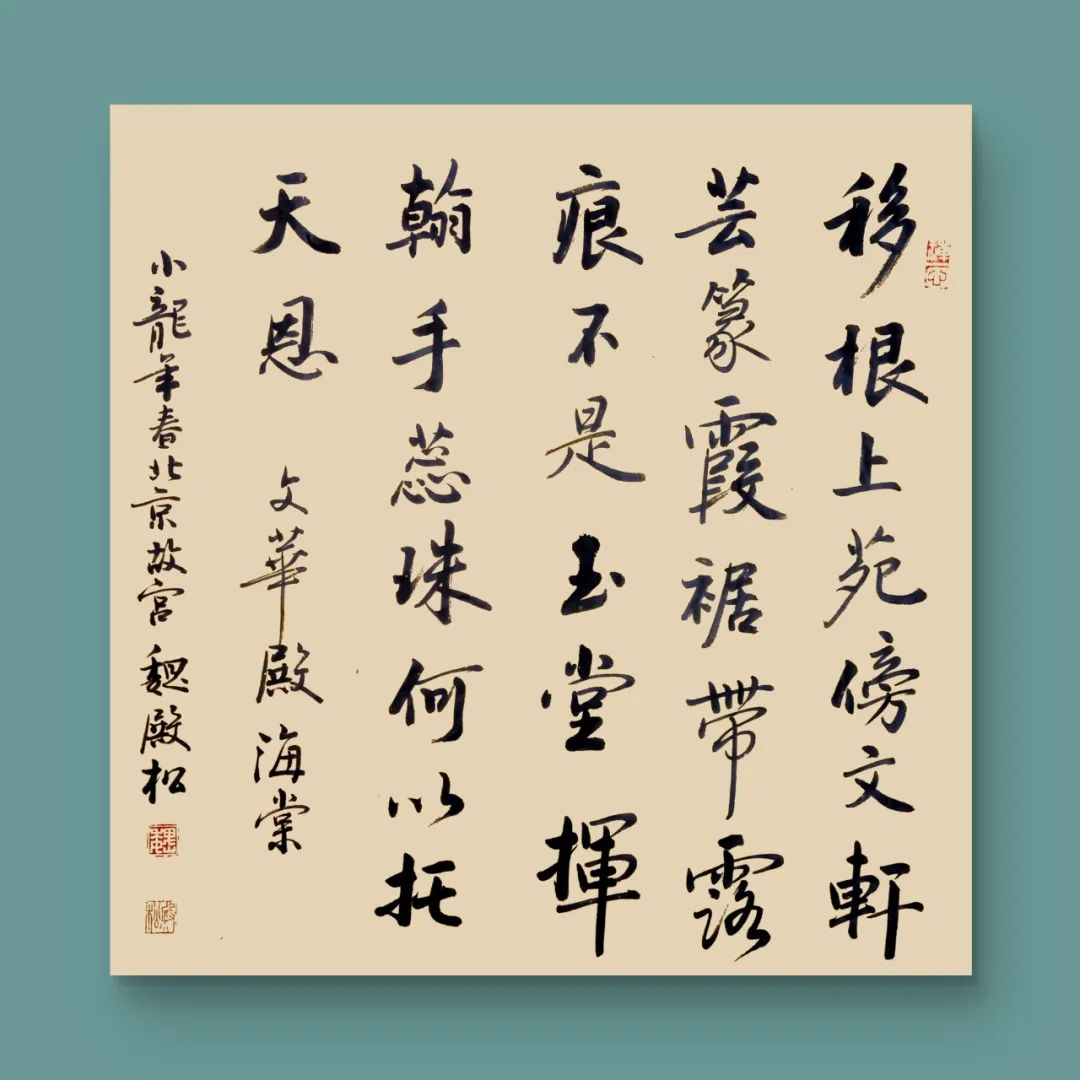 移根上苑傍文軒
芸篆霞裾帶露
痕不是玉堂揮
翰手蕊珠何以托
天恩 文華殿海棠
小龍年春北京故宮 魏殿松